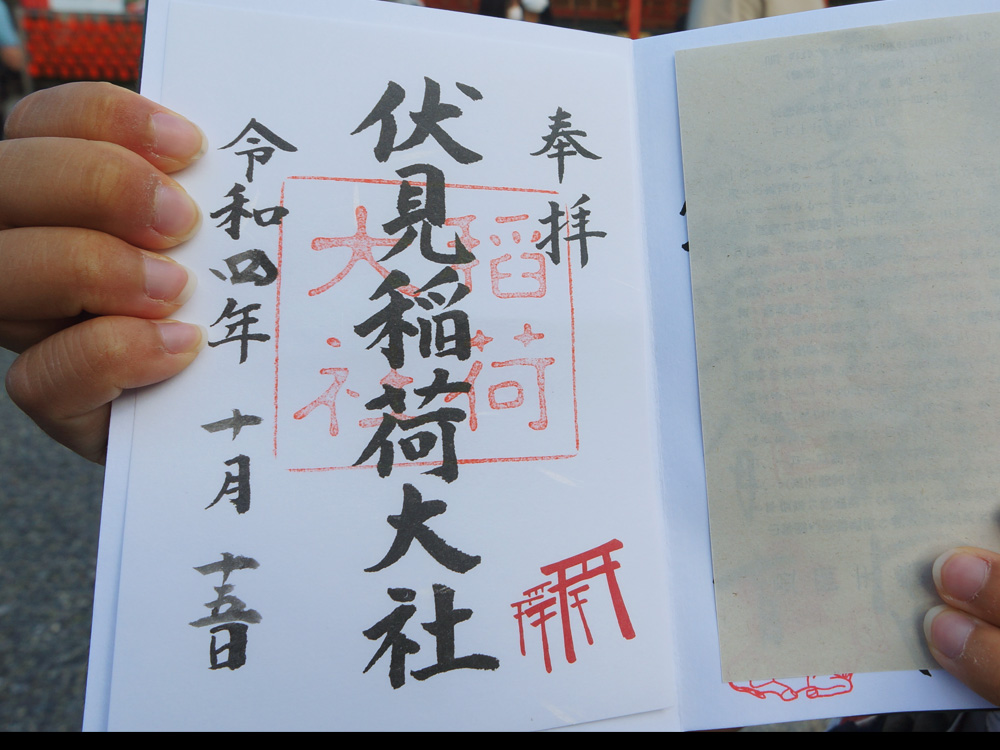 奉拝
伏見稲荷大社
稲荷
大社
令和四年十月十五日